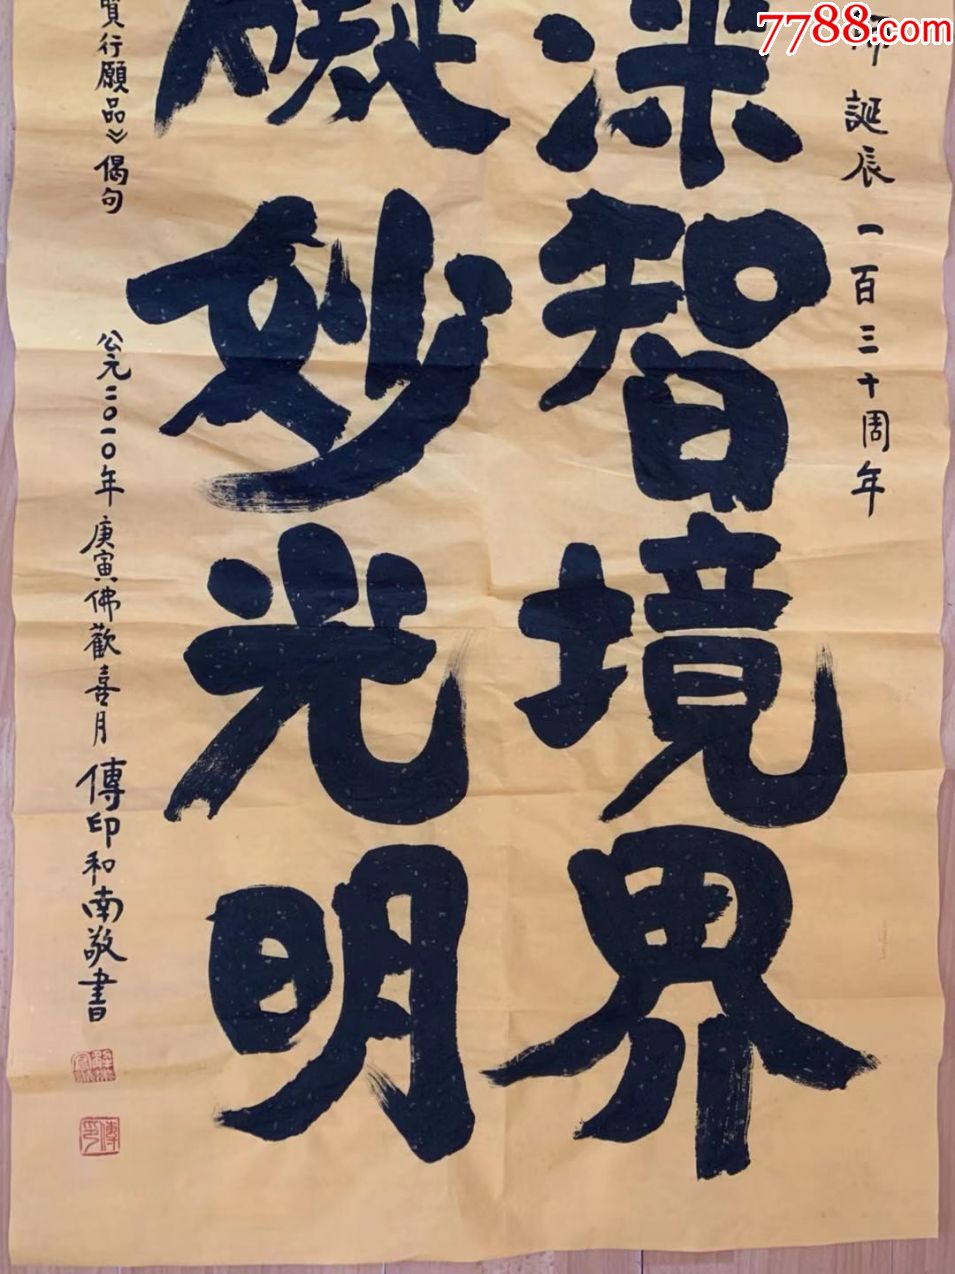 7788.com
師誕辰一百三十周年
深智境界
礙妙光明
賢行願品》偈句
公元二〇一〇年庚寅佛歡喜月傳印和南敬書
傳印